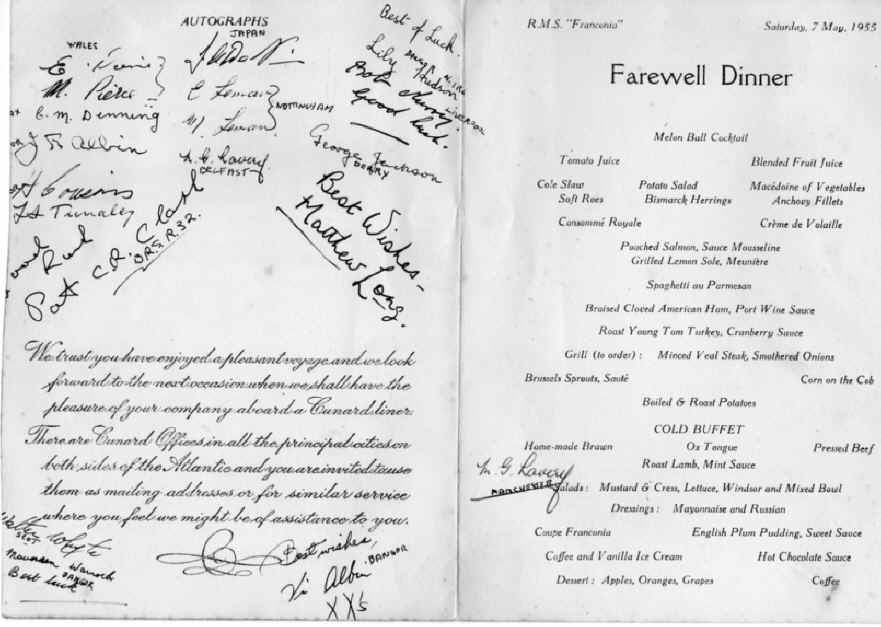 AUTOGRAPHS
WALES
JAPAN
E.
M. Pierce
C. M. Denning
J R Albin
C Leman
M Leman
NOTTINGHAM
N. G. Lavery
BELFAST
Cousins
Best of Luck.
Lily Hudson
Good luck.
George Jackson
DERRY
Best Wishes-
Matthew Long.
Good Luck
Pat
We trust you have enjoyed a pleasant voyage and we look
forward to the next occasion when we shall have the
pleasure of your company aboard a Cunard liner.
There are Cunard Offices in all the principal cities on
both sides of the Atlantic and you are invited to use
them as mailing addresses or for similar service
where you feel we might be of assistance to you.
Whyte
SCOT
Maureen Warnock
BANGOR
Best luck
Best wishes,
Vi Albin
BANGOR
XX's
R.M.S. "Franconia"
Saturday, 7 May, 1955
Farewell Dinner
Melon Ball Cocktail
Tomato Juice Blended Fruit Juice
Cole Slaw Potato Salad Macédoine of Vegetables
Soft Roes Bismarck Herrings Anchovy Fillets
Consommé Royale Crème de Volaille
Poached Salmon, Sauce Mousseline
Grilled Lemon Sole, Meunière
Spaghetti au Parmesan
Braised Cloved American Ham, Port Wine Sauce
Roast Young Tom Turkey, Cranberry Sauce
Grill (to order) : Minced Veal Steak, Smothered Onions
Brussels Sprouts, Sauté Corn on the Cob
Boiled & Roast Potatoes
COLD BUFFET
Home-made Brawn Ox Tongue Pressed Beef
Roast Lamb, Mint Sauce
M. G. Lavery
MANCHESTER
Salads : Mustard & Cress, Lettuce, Windsor and Mixed Bowl
Dressings : Mayonnaise and Russian
Coupe Franconia English Plum Pudding, Sweet Sauce
Coffee and Vanilla Ice Cream Hot Chocolate Sauce
Dessert : Apples, Oranges, Grapes Coffee